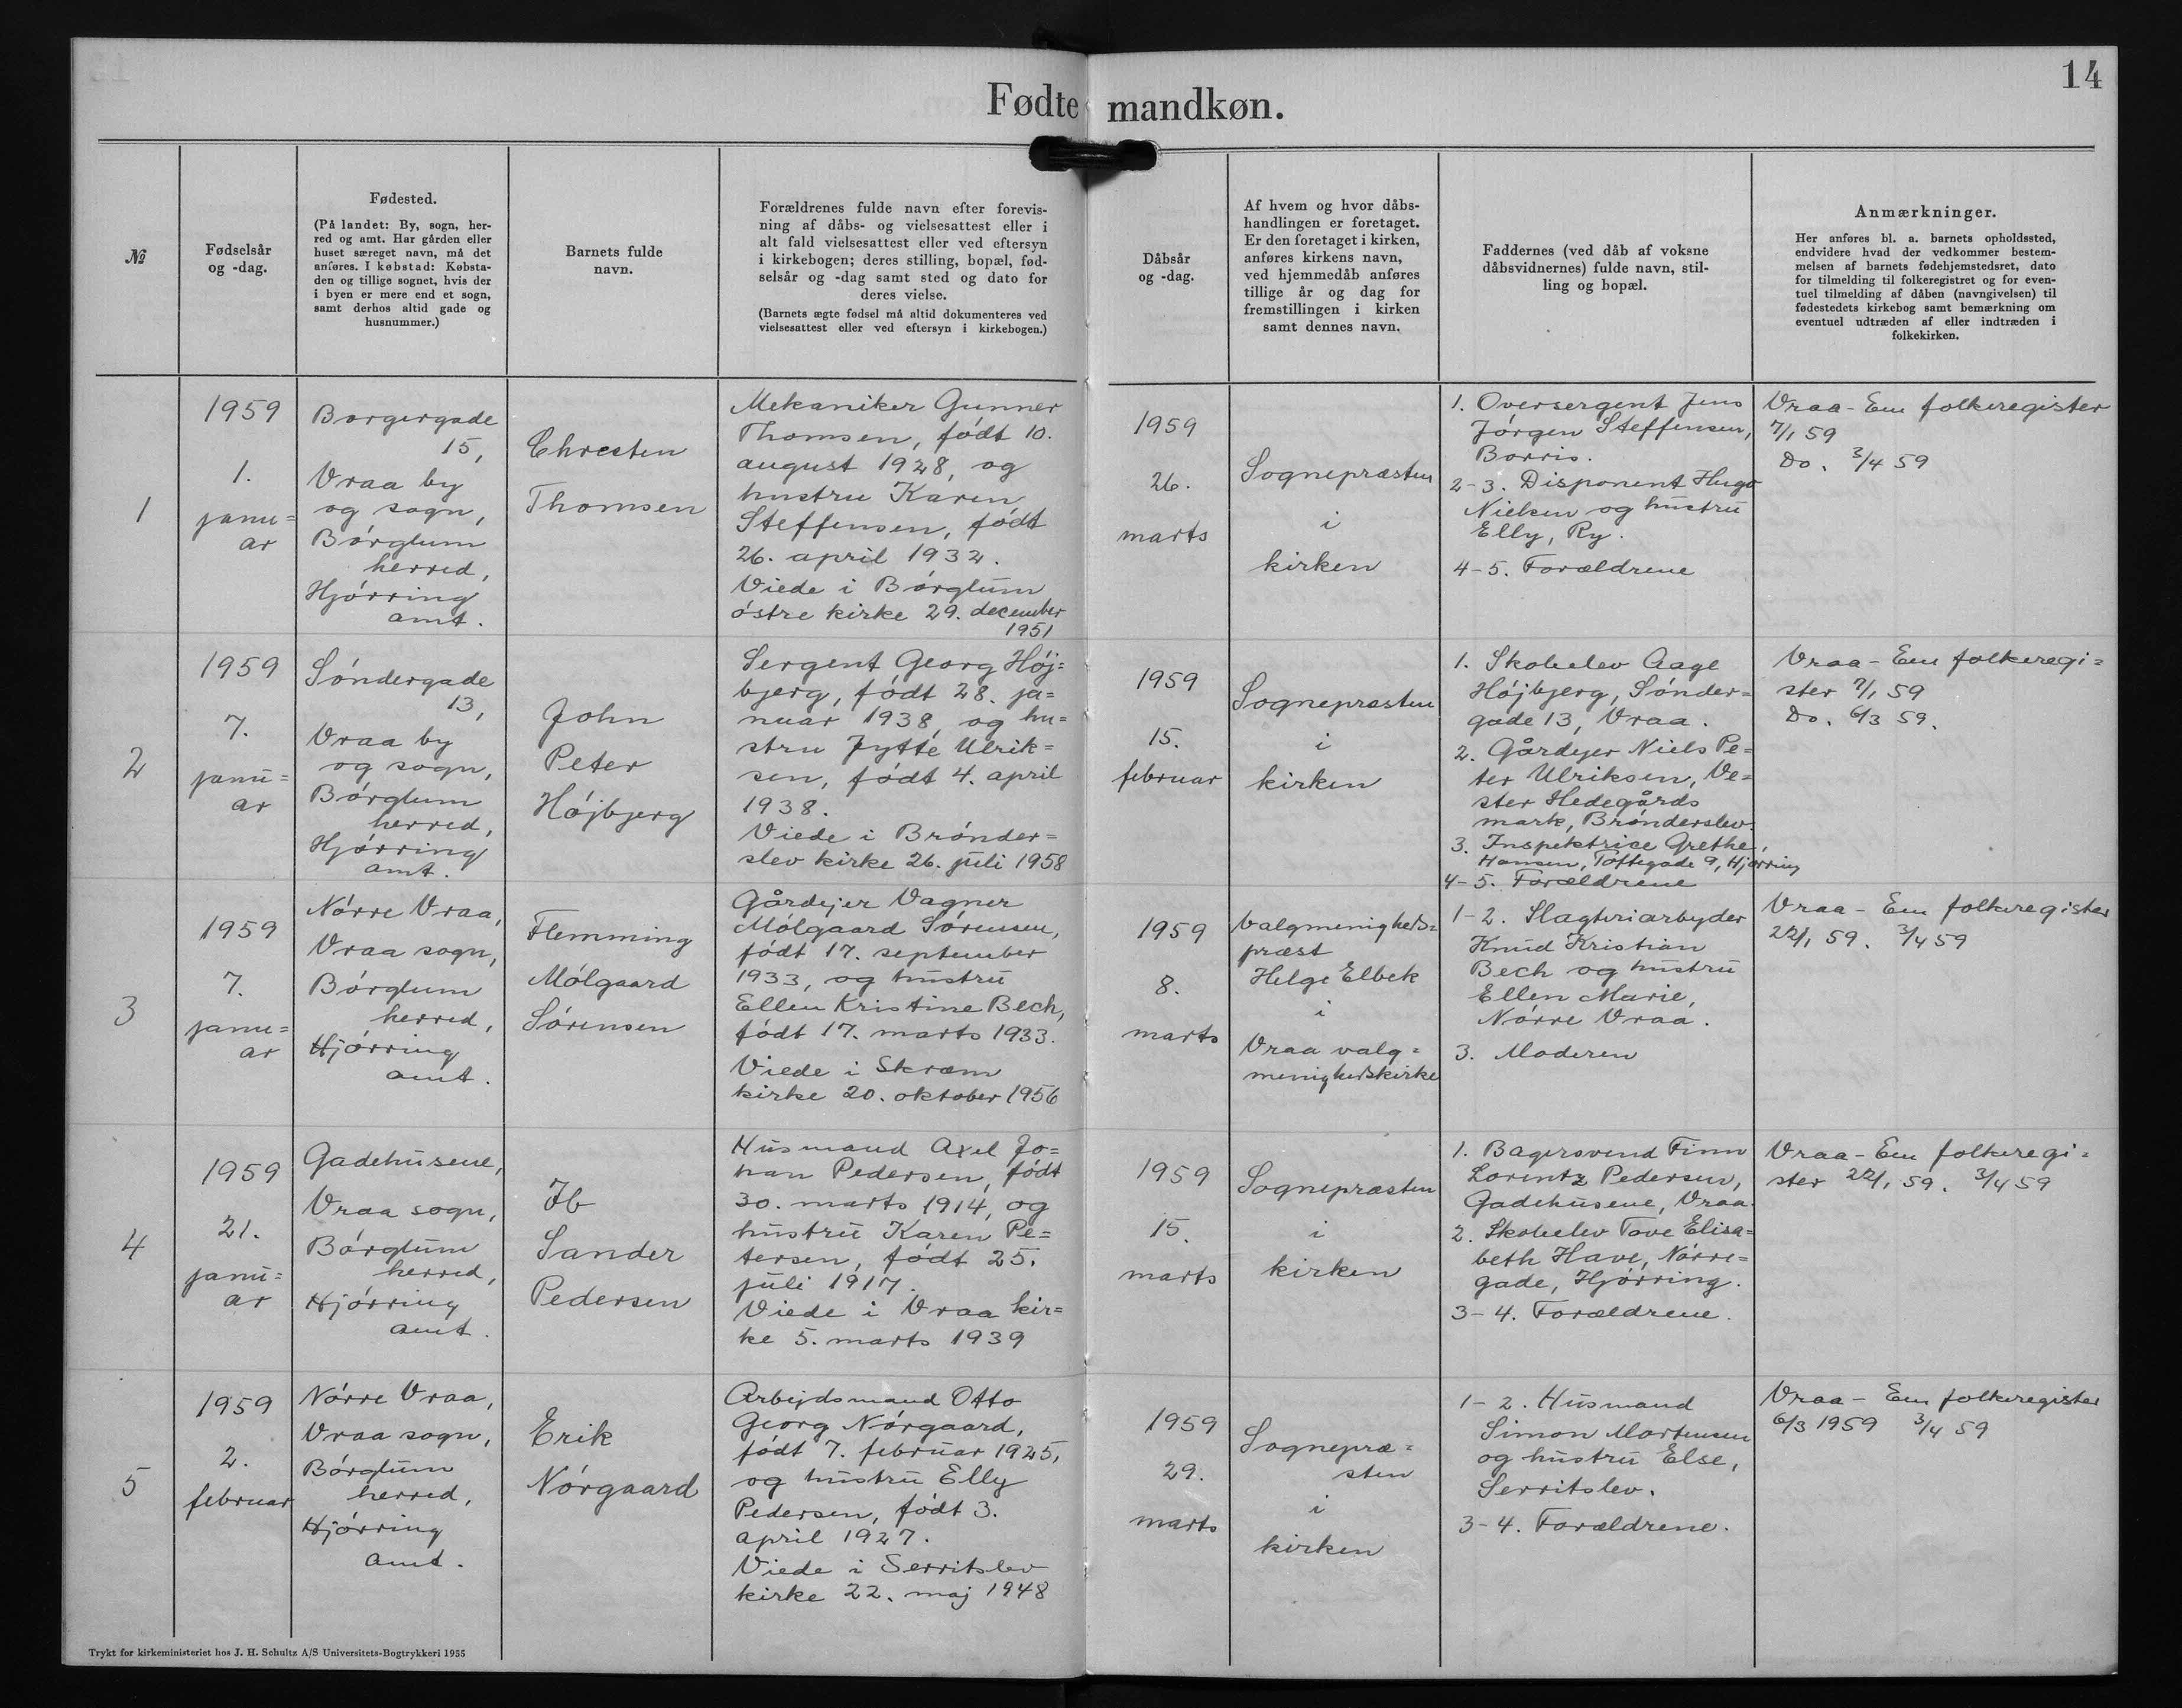 14
Fødte mandkøn.
№
Fødselsår
og -dag.
Fødested.
(På landet: By, sogn, her-
red og amt. Har gården eller
huset særeget navn, må det
anføres. I købstad: Købsta-
den og tillige sognet, hvis der
i byen er mere end et sogn,
samt derhos altid gade og
husnummer.)
Barnets fulde
navn.
Forældrenes fulde navn efter forevis-
ning af dåbs- og vielsesattest eller i
alt fald vielsesattest eller ved eftersyn
i kirkebogen; deres stilling, bopæl, fød-
selsår og -dag samt sted og dato for
deres vielse.
(Barnets ægte fødsel må altid dokumenteres ved
vielsesattest eller ved eftersyn i kirkebogen.)
Dåbsår
og -dag.
Af hvem og hvor dåbs-
handlingen er foretaget.
Er den foretaget i kirken,
anføres kirkens navn,
ved hjemmedåb anføres
tillige år og dag for
fremstillingen i kirken
samt dennes navn.
Faddernes (ved dåb af voksne
dåbsvidnernes) fulde navn, stil-
ling og bopæl.
Anmærkninger.
Her anføres bl. a. barnets opholdssted,
endvidere hvad der vedkommer bestem-
melsen af barnets fødehjemstedsret, dato
for tilmelding til folkeregistret og for even-
tuel tilmelding af dåben (navngivelsen) til
fødestedets kirkebog samt bemærkning om
eventuel udtræden af eller indtræden i
folkekirken.
1
1959
1.
janu=
ar
Borgergade
15,
Vraa by
og sogn,
Børglum
herred,
Hjørring
amt.
Chresten
Thomsen
Mekaniker Gunner
Thomsen, født 10.
august 1928, og
hustru Karen
Steffensen, født
26. april 1932.
Viede i Børglum
østre kirke 29. december
1951
1959
26.
marts
Sognepræsten
i
kirken
1. Oversergent Jens
Jørgen Steffensen,
Borris.
2-3. Disponent Hugo
Nielsen og hustru
Elly, Ry.
4-5. Forældrene
Vraa - Em folkeregister
7/1 59
Do. 3/4 59
2
1959
7.
janu=
ar
Søndergade
13,
Vraa by
og sogn,
Børglum
herred,
Hjørring
amt.
John
Peter
Højbjerg
Sergent Georg Høj=
bjerg, født 28. ja=
nuar 1938, og hu=
stru Jytte Ulrik=
sen, født 4. april
1938.
Viede i Brønder=
slev kirke 26. juli 1958
1959
15.
februar
Sognepræsten
i
kirken
1. Skoleelev Aage
Højbjerg, Sønder=
gade 13, Vraa.
2. Gårdejer Niels Pe=
ter Ulriksen, Ve=
ster Hedegårds
mark, Brønderslev.
3. Inspektrice Grethe
Hansen, Toftegade 9, Hjørring
4-5. Forældrene
Vraa - Em folkeregi=
ster 7/1 59
Do. 6/3 59.
3
1959
7.
janu=
ar
Nørre Vraa,
Vraa sogn,
Børglum
herred,
Hjørring
amt.
Flemming
Mølgaard
Sørensen
Gårdejer Vagner
Mølgaard Sørensen,
født 17. september
1933, og hustru
Ellen Kristine Bech,
født 17. marts 1933.
Viede i Skræm
kirke 20. oktober 1956
1959
8.
marts
Valgmenigheds=
præst
Helge Elbek
i
Vraa valg=
menighedskirke
1-2. Slagteriarbejder
Knud Kristian
Bech og hustru
Ellen Marie,
Nørre Vraa.
3. Moderen
Vraa - Em folkeregister
22/1 59. 3/4 59
4
1959
21.
janu=
ar
Gadehusene,
Vraa sogn,
Børglum
herred,
Hjørring
amt.
Ib
Sander
Pedersen
Husmand Axel Jo=
han Pedersen, født
30. marts 1914, og
hustru Karen Pe=
tersen, født 25.
juli 1917.
Viede i Vraa kir=
ke 5. marts 1939
1959
15.
marts
Sognepræsten
i
kirken
1. Bagersvend Finn
Lorentz Pedersen,
Gadehusene, Vraa.
2. Skoleelev Tove Elisa=
beth Have, Nørre=
gade, Hjørring.
3-4. Forældrene.
Vraa - Em folkeregi=
ster 22/1 59. 3/4 59
5
1959
2.
februar
Nørre Vraa,
Vraa sogn,
Børglum
herred,
Hjørring
amt.
Erik
Nørgaard
Arbejdsmand Otto
Georg Nørgaard,
født 7. februar 1925,
og hustru Elly
Pedersen, født 3.
april 1927.
Viede i Serritslev
kirke 22. maj 1948
1959
29.
marts
Sognepræ=
sten
i
kirken
1-2. Husmand
Simon Mortensen
og hustru Else,
Serritslev.
3-4. Forældrene.
Vraa - Em folkeregister
6/3 1959 3/4 59
Trykt for kirkeministeriet hos J. H. Schultz A/S Universitets-Bogtrykkeri 1955